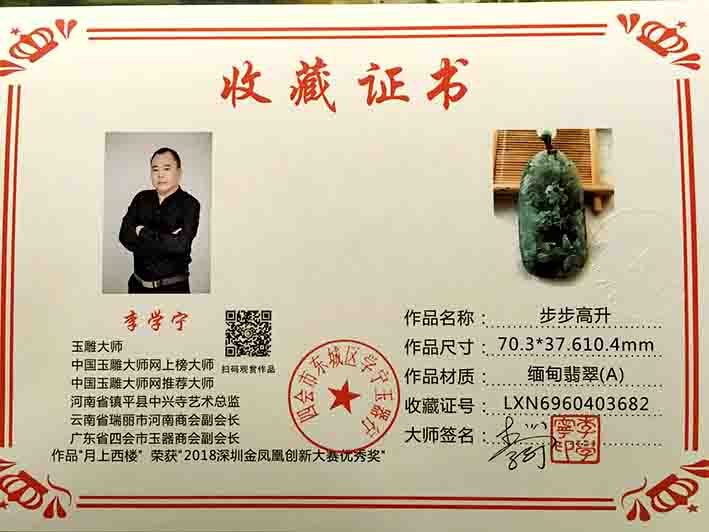 收藏证书
李学宁
玉雕大师
中国玉雕大师网上榜大师
中国玉雕大师网推荐大师
河南省镇平县中兴寺艺术总监
云南省瑞丽市河南商会副会长
广东省四会市玉器商会副会长
作品"月上西楼" 荣获"2018深圳金凤凰创新大赛优秀奖"
扫码观赏作品
四会市东城区学宁玉器行
作品名称: 步步高升
作品尺寸: 70.3*37.610.4mm
作品材质: 缅甸翡翠(A)
收藏证号: LXN6960403682
大师签名:
李学宁印